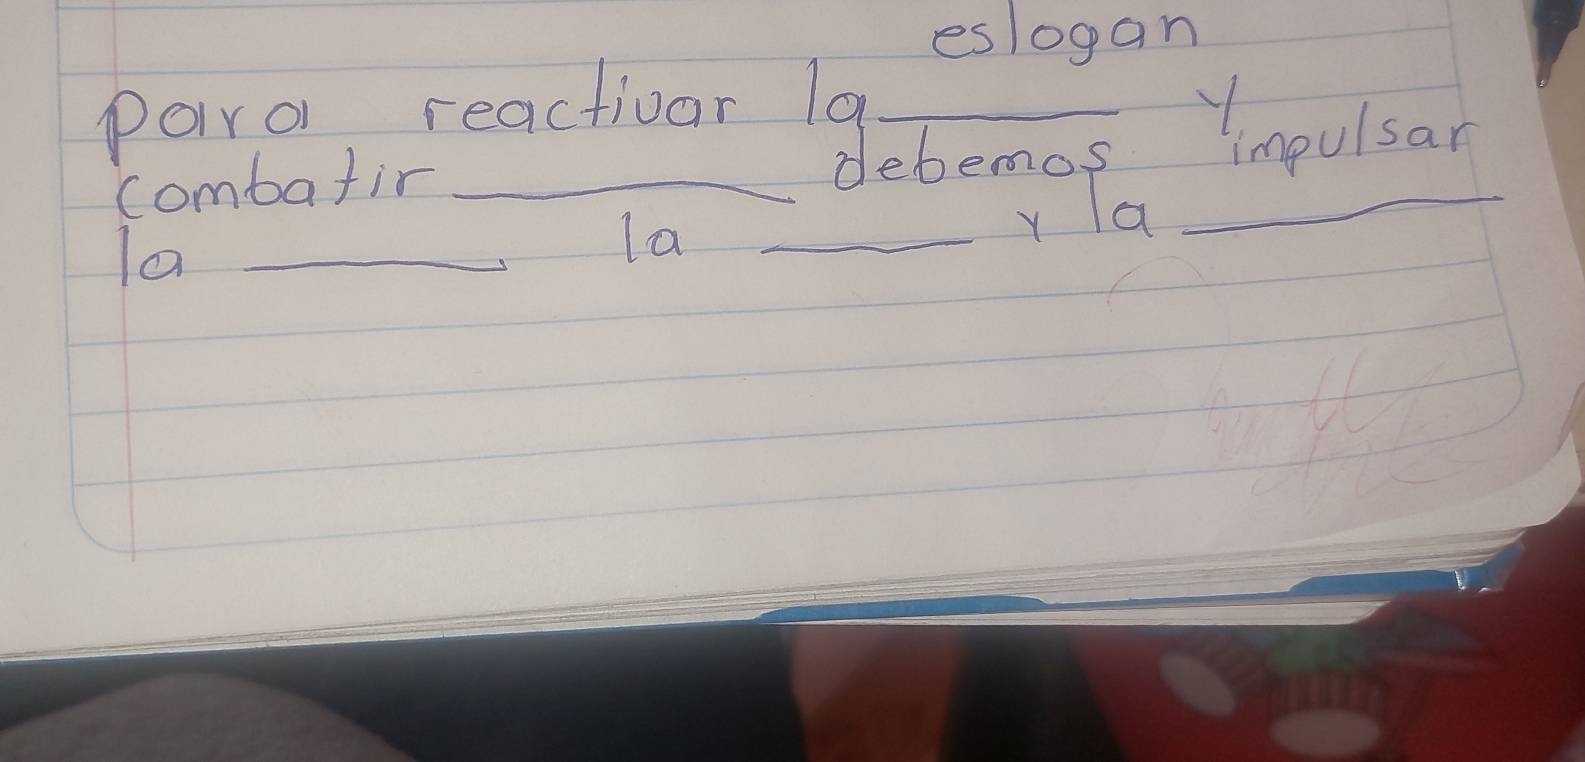 eslogan
para reactivar la ______ y
combatir ______ debemos impulsar
la ______ la ______ y la ______